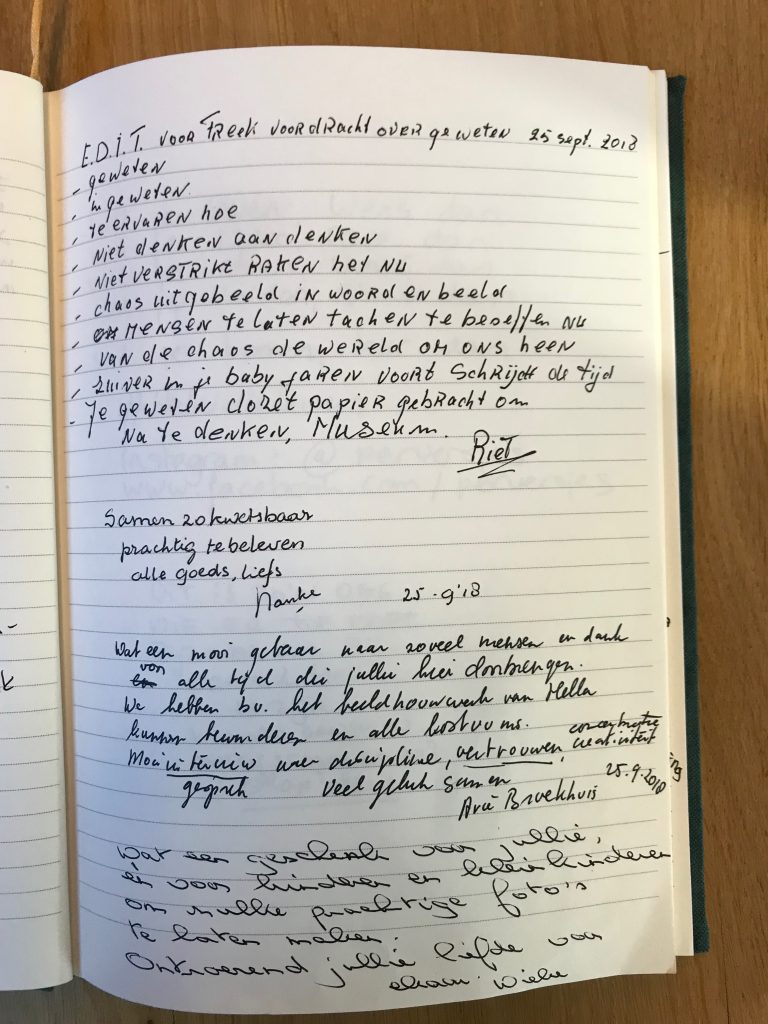 E.D.i.T. voor Freek voordracht over geweten 25 sept. 2018
- geweten
- in geweten.
- te ervaren hoe
- Niet denken aan denken
- Niet verstrikt raken het nu
- chaos uitgebeeld in woord en beeld
- mensen te laten lachen te beseffen nu
- van de chaos de wereld om ons heen
- zuiver in je baby jaren voort schrijdt de tijd
- Je geweten clozet papier gebracht om
Na te denken, Museum.
Riet
Samen zo kwetsbaar
prachtig te beleven
alle goeds, liefs
25-9'18
Wat een mooi gebaar naar zoveel mensen en dank
voor alle tijd die jullie hier doorbrengen.
We hebben bv. het beeldhouwwerk van Hella
kunnen bewonderen en alle kostuums.
Mooi interview over discipline, vertrouwen, concentratie
creativiteit
gesprek veel geluk samen 25.9.2018
Broekhuis
Wat een geschenk voor jullie,
èn voor kinderen en kleinkinderen
om zulke prachtige foto's
te laten maken.
Ontroerend jullie liefde voor
elkaar. Wieke